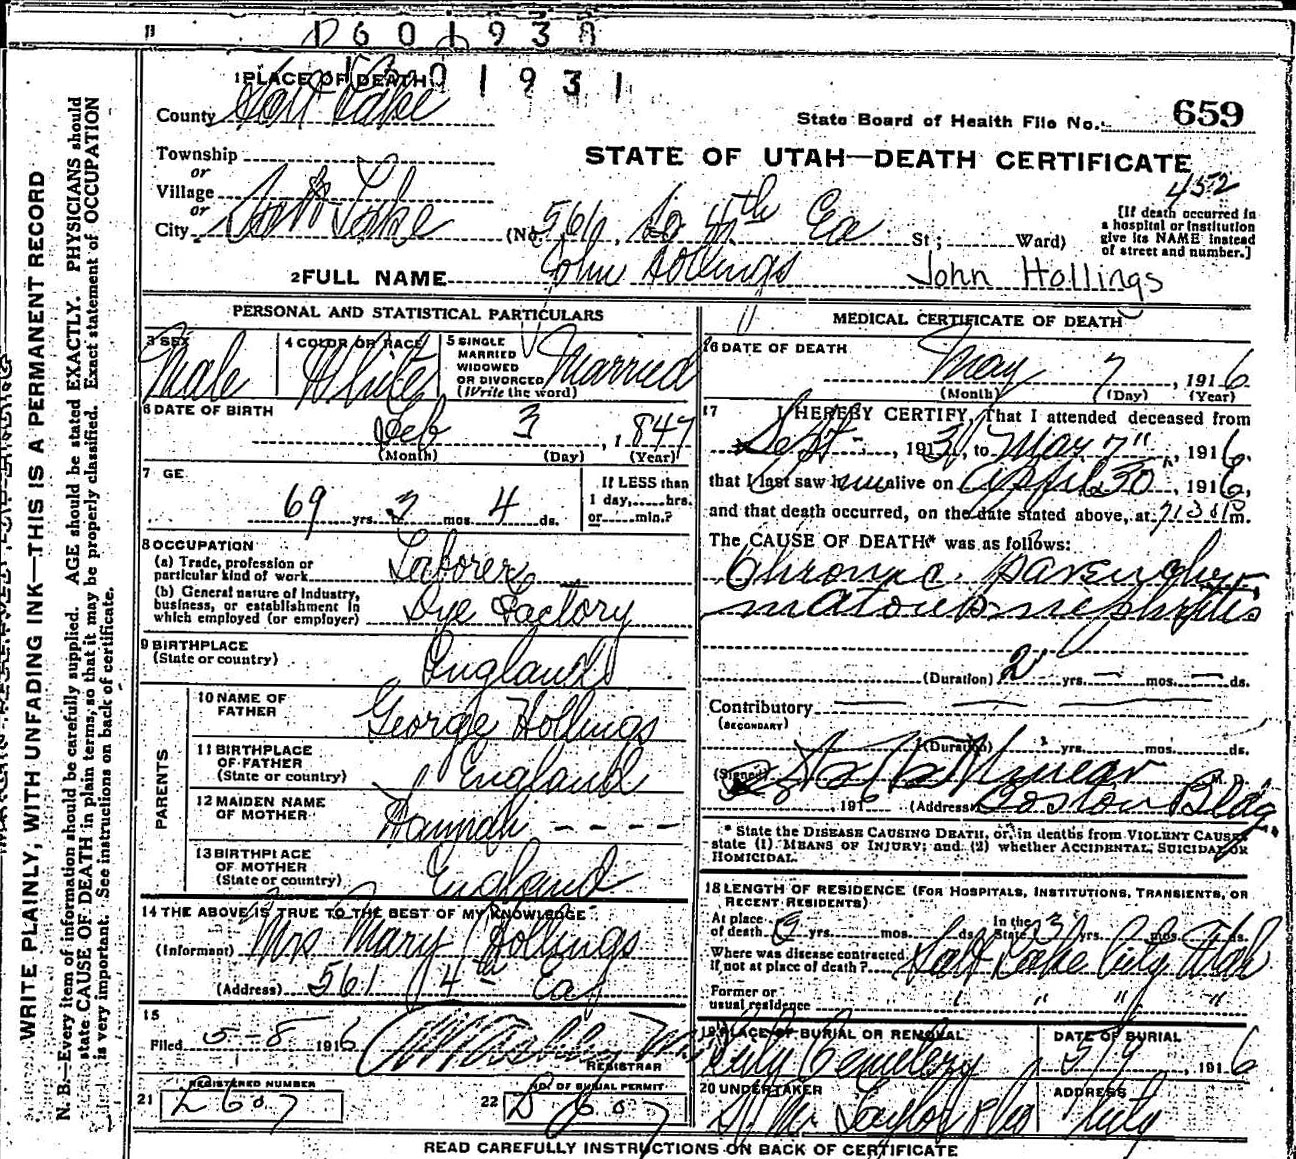 1 PLACE OF DEATH
County Salt Lake
State Board of Health File No. 659
STATE OF UTAH—DEATH CERTIFICATE
452
Township
or
Village
or
City Salt Lake (No. 561, So 4th Ea St; Ward)
[If death occurred in
a hospital or institution
give its NAME instead
of street and number.]
2 FULL NAME John Hollings John Hollings
PERSONAL AND STATISTICAL PARTICULARS
3 SEX Male
4 COLOR OR RACE White
5 SINGLE
MARRIED
WIDOWED
OR DIVORCED
(Write the word) Married
6 DATE OF BIRTH
Feb 3, 1847
(Month) (Day) (Year)
7 GE
69 yrs. 3 mos. 4 ds.
If LESS than
1 day, hrs.
or min.?
8 OCCUPATION
(a) Trade, profession or
particular kind of work Laborer
(b) General nature of Industry,
business, or establishment in
which employed (or employer) Dye Factory
9 BIRTHPLACE
(State or country) England
PARENTS
10 NAME OF
FATHER George Hollings
11 BIRTHPLACE
OF FATHER
(State or country) England
12 MAIDEN NAME
OF MOTHER Hannah - - - -
13 BIRTHPLACE
OF MOTHER
(State or country) England
14 THE ABOVE IS TRUE TO THE BEST OF MY KNOWLEDGE
(Informant) Mrs Mary Hollings
(Address) 561 4th Ea
15
Filed 5-8 1916
REGISTRAR
REGISTERED NUMBER
21 607
NO. OF BURIAL PERMIT
22 607
MEDICAL CERTIFICATE OF DEATH
16 DATE OF DEATH
May 7, 1916
(Month) (Day) (Year)
17 I HEREBY CERTIFY, That I attended deceased from
Sept, 191 , to May 7", 1916,
that I last saw him alive on April 30", 1916,
and that death occurred, on the date stated above, at m.
The CAUSE OF DEATH* was as follows:
Chronic parenchy-
matous nephritis
(Duration) 2 yrs. — mos. — ds.
Contributory
(SECONDARY)
(Duration) yrs. mos. ds.
(Signed) M. D.
, 191 (Address) Boston Bldg.
* State the DISEASE CAUSING DEATH, or, in deaths from VIOLENT CAUSES
state (1) MEANS OF INJURY; and (2) whether ACCIDENTAL, SUICIDAL OR
HOMICIDAL.
18 LENGTH OF RESIDENCE (FOR HOSPITALS, INSTITUTIONS, TRANSIENTS, OR
RECENT RESIDENTS)
At place
of death 9 yrs. mos. ds. In the
State yrs. mos. ds.
Where was disease contracted
if not at place of death? Salt Lake City Utah
Former or
usual residence " " " "
19 PLACE OF BURIAL OR REMOVAL
City Cemetery
DATE OF BURIAL
5/9, 1916
20 UNDERTAKER
Taylor
ADDRESS
City
READ CAREFULLY INSTRUCTIONS ON BACK OF CERTIFICATE
WRITE PLAINLY, WITH UNFADING INK—THIS IS A PERMANENT RECORD
N. B.—Every item of information should be carefully supplied. AGE should be stated EXACTLY. PHYSICIANS should
state CAUSE OF DEATH in plain terms, so that it may be properly classified. Exact statement of OCCUPATION
is very important. See instructions on back of certificate.